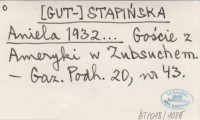 [GUT-] STAPIŃSKA
Aniela 1932... Goście z
Ameryki w Zubsuchem.
- Gaz. Podh. 20, nr 43.